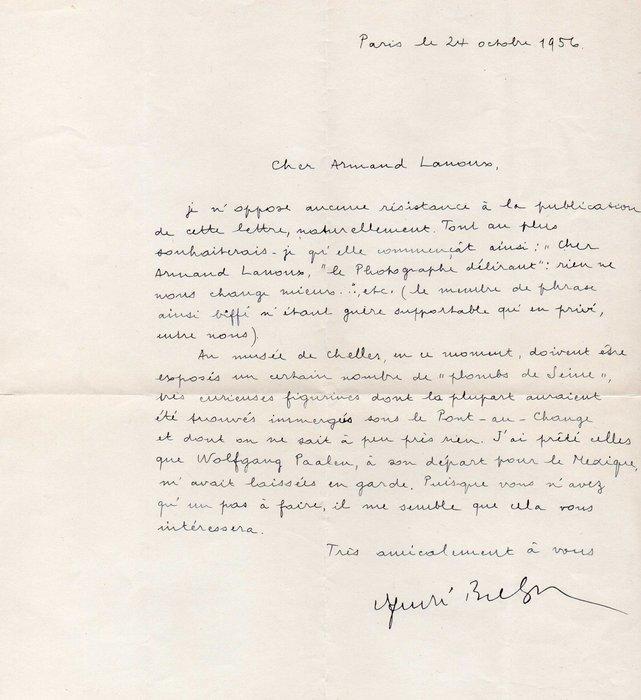 Paris le 24 octobre 1956.
Cher Armand Lanoux,
je n'oppose aucune résistance à la publication
de cette lettre, naturellement. Tout au plus
souhaiterais-je qu'elle commençât ainsi : "Cher
Armand Lanoux, "le Photographe délirant" : rien ne
nous change mieux..., etc. (le membre de phrase
ainsi biffé n'étant guère supportable qu'en privé,
entre nous).
Au musée de Chelles, en ce moment, doivent être
exposés un certain nombre de "plombs de Seine",
très curieuses figurines dont la plupart auraient
été trouvés immergés sous le Pont-au-Change
et dont on ne sait à peu près rien. J'ai prêté celles
que Wolfgang Paalen, à son départ pour le Mexique,
m'avait laissées en garde. Puisque vous n'avez
qu'un pas à faire, il me semble que cela vous
intéressera.
Très amicalement à vous
André Breton